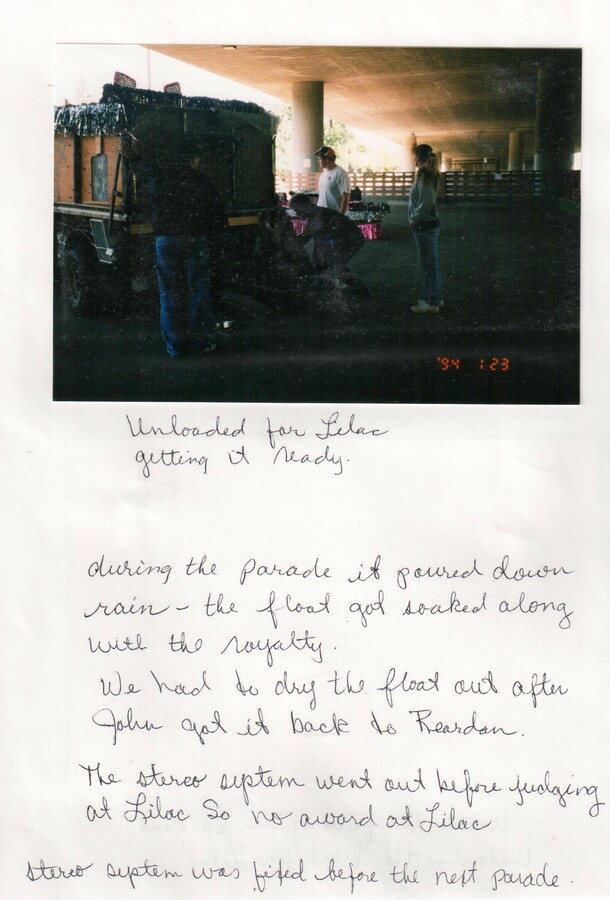 '94 1 23
Unloaded for Lilac
getting it ready.
during the parade it poured down
rain - the float got soaked along
with the royalty.
We had to dry the float out after
John got it back to Reardan.
The stereo system went out before judging
at Lilac So no award at Lilac
stereo system was fixed before the next parade.